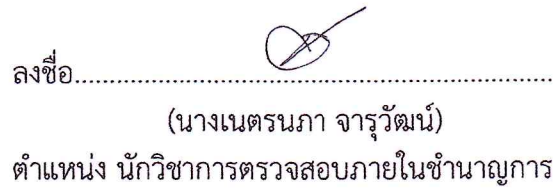 ลงชื่อ........................................................................
(นางเนตรนภา จารุวัฒน์)
ตำแหน่ง นักวิชาการตรวจสอบภายในชำนาญการ